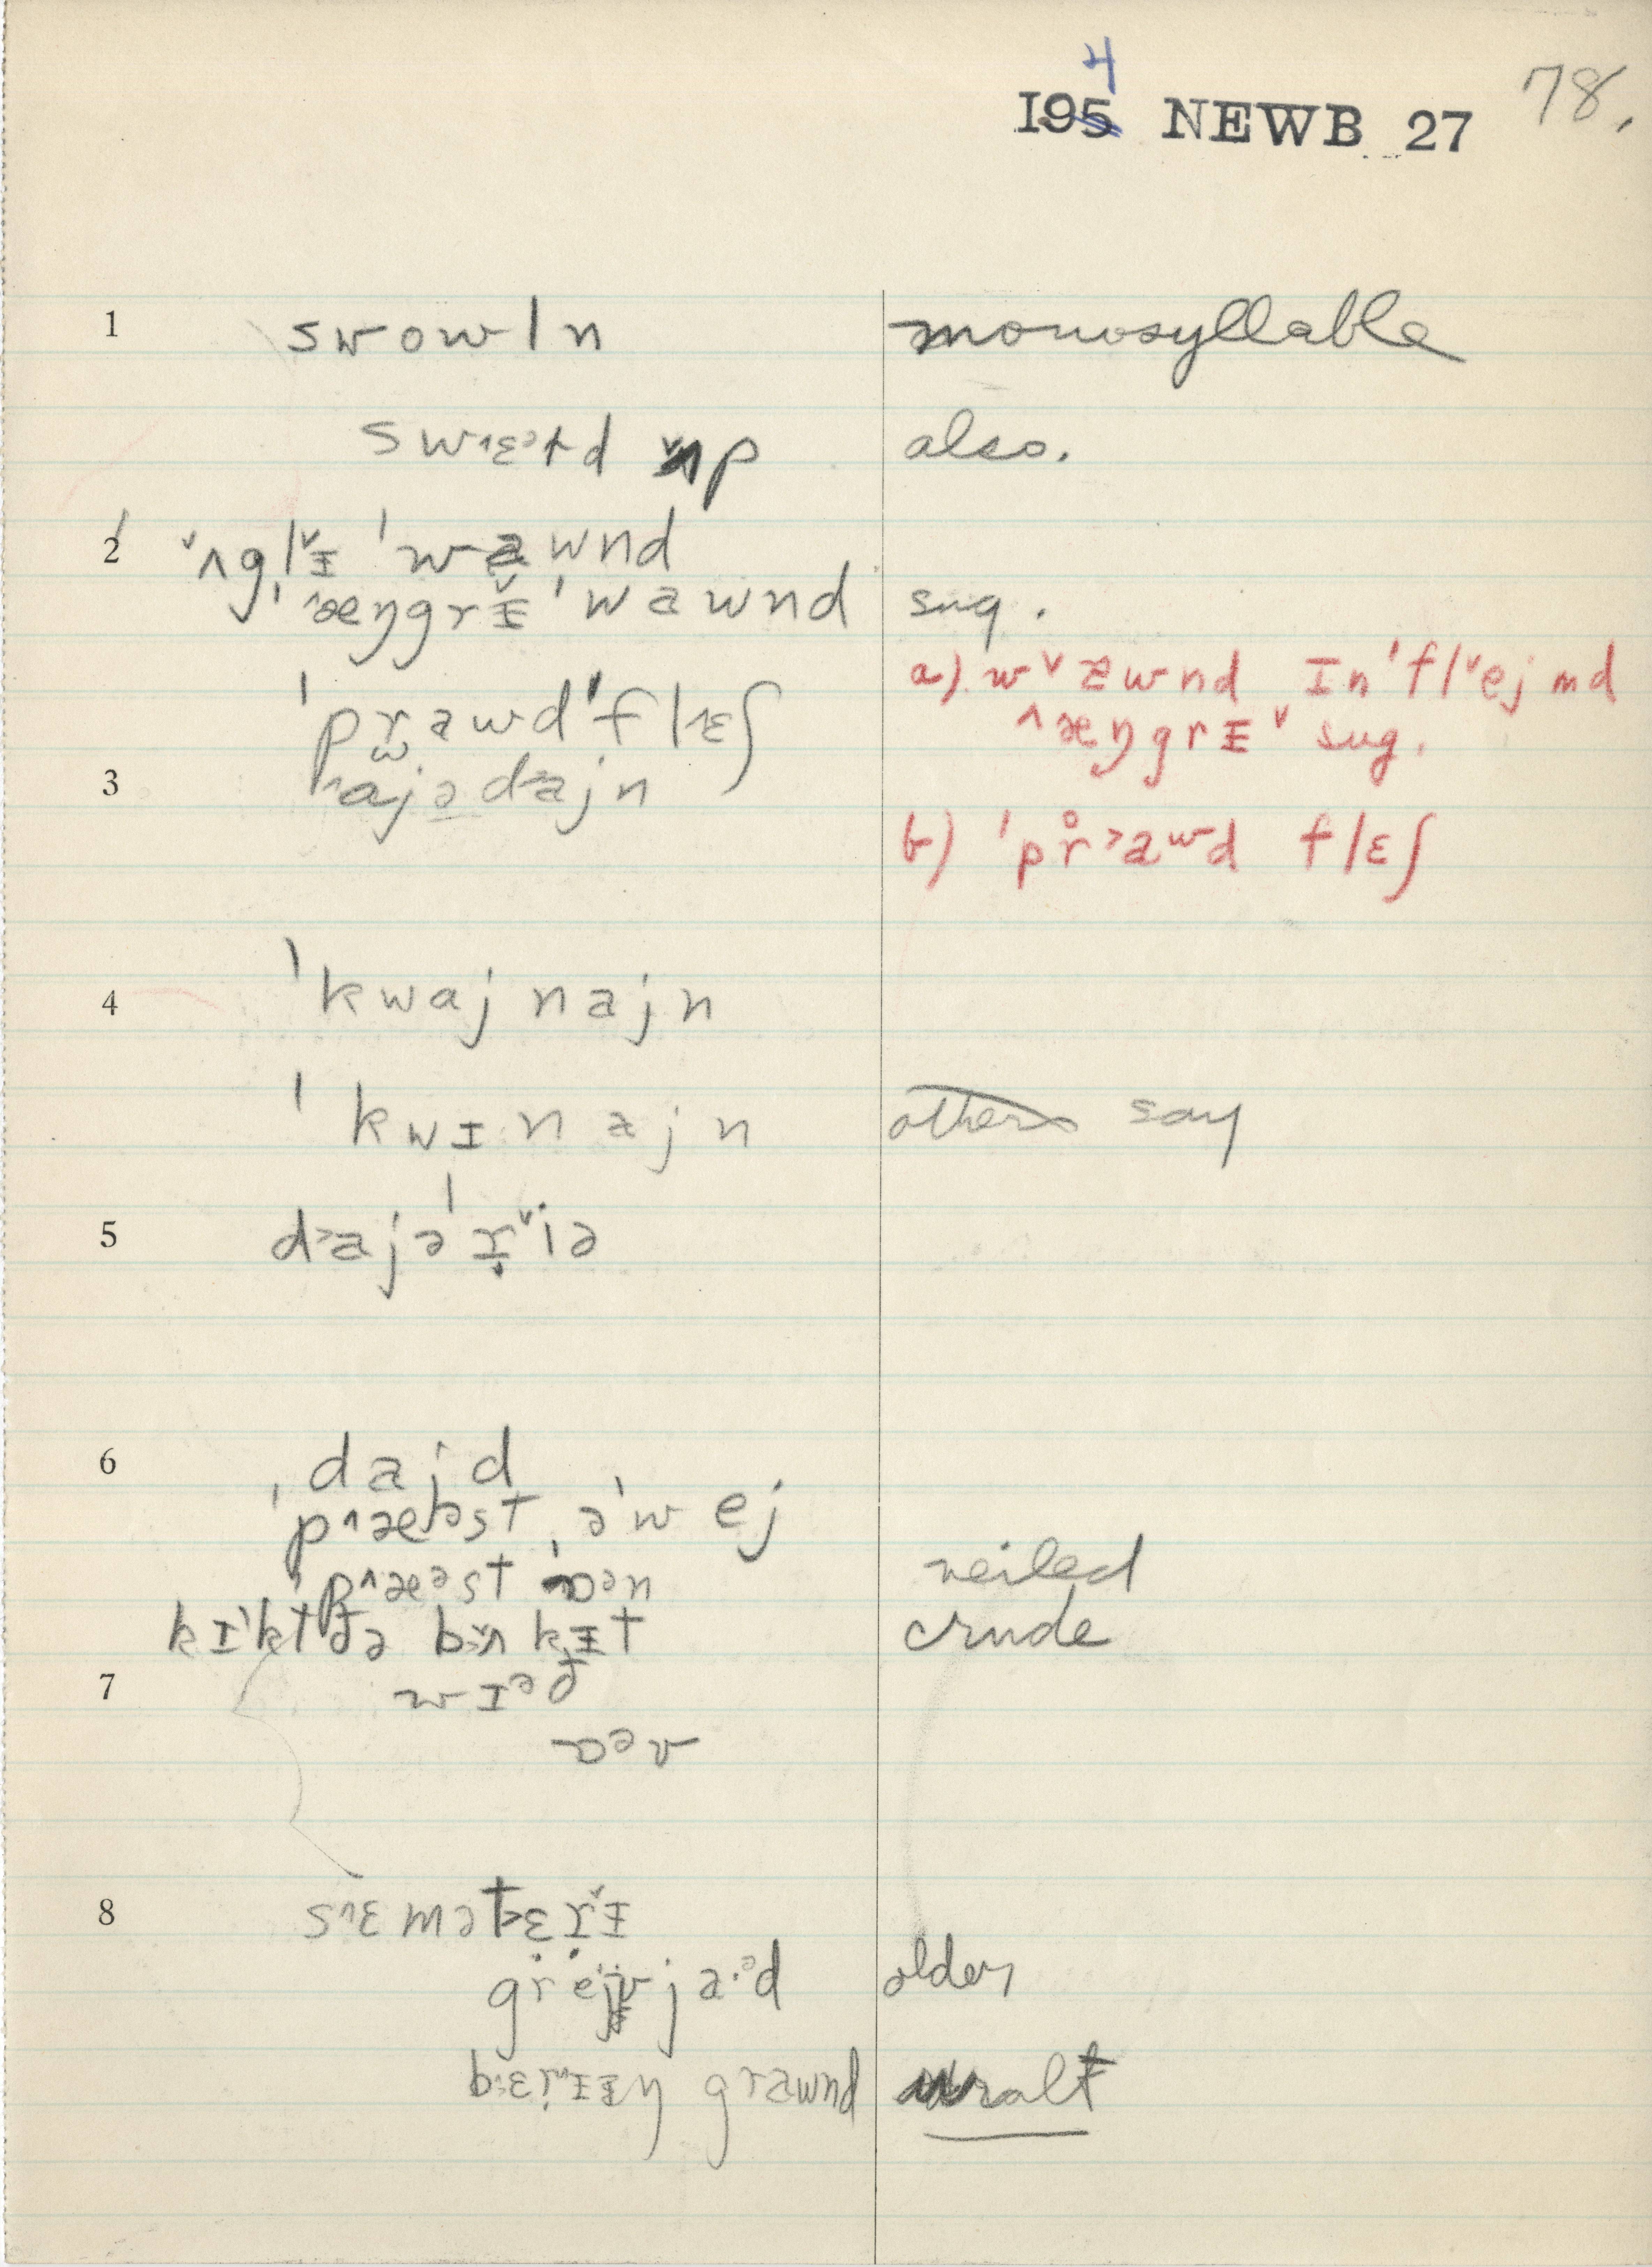 4
195 NEWB 27 78.
1 swowln monosyllable
swɛətd ʌp also.
2 ˅ʌglɪ˅ 'wawnd
^æŋgrɪ˅ 'wawnd sug.
a) w˅awnd ɪn'fl˅ejmd
^æŋgrɪ˅ sug.
'prawd'fl^ɛʃ
3 ajədajn
b) 'pr̊˃awd flɛʃ
4 'kwajnajn
'kwɪnajn others say
5 d˃ajə'r̬˅iə
6 dajd
'p^æəst ə'wej
'p^æəst ɒən veiled
kɪ'kt ðə bʌkɪt crude
7 wɪəð
ɒəv
8 s^ɛmətɛrɪ˅
grejvja·əd older
bɛrɪɪŋ grawnd